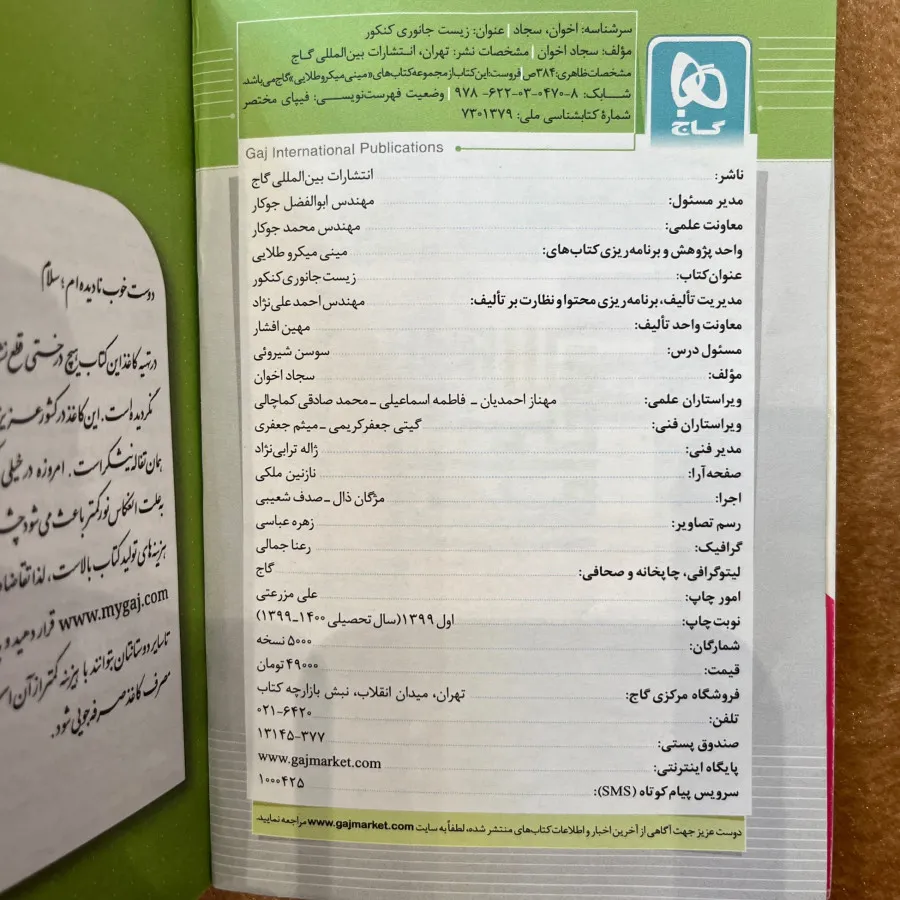 سرشناسه: اخوان، سجاد | عنوان: زیست جانوری کنکور
مؤلف: سجاد اخوان | مشخصات نشر: تهران، انتشارات بین‌المللی گـاج
مشخصات‌ظاهری: ۳۸۴ص | فروست: این‌کتاب‌از‌مجموعه‌کتاب‌های«مینی‌میکروطلایی»گاج‌می‌باشد.
شـابـک: ۸-۰۴۷۰-۰۳-۶۲۲-۹۷۸ | وضعیت فهرست‌نویسی: فیپای مختصر
شمارهٔ کتابشناسی ملی: ۷۳۰۱۳۷۹
گـاج
Gaj International Publications
ناشر: انتشارات بین‌المللی گاج
مدیر مسئول: مهندس ابوالفضل جوکار
معاونت علمی: مهندس محمد جوکار
واحد پژوهش و برنامه‌ریزی کتاب‌های: مینی میکرو طلایی
عنوان کتاب: زیست جانوری کنکور
مدیریت تألیف، برنامه‌ریزی محتوا و نظارت بر تألیف: مهندس احمد علی‌نژاد
معاونت واحد تألیف: مهین افشار
مسئول درس: سوسن شیروئی
مؤلف: سجاد اخوان
ویراستاران علمی: مهناز احمدیان ـ فاطمه اسماعیلی ـ محمد صادقی کماچالی
ویراستاران فنی: گیتی جعفرکریمی ـ میثم جعفری
مدیر فنی: ژاله ترابی‌نژاد
صفحه‌آرا: نازنین ملکی
اجرا: مژگان ذال ـ صدف شعیبی
رسم تصاویر: زهره عباسی
گرافیک: رعنا جمالی
لیتوگرافی، چاپخانه و صحافی: گاج
امور چاپ: علی مزرعتی
نوبت چاپ: اول ۱۳۹۹(سال تحصیلی ۱۴۰۰ـ۱۳۹۹)
شمارگان: ۵۰۰۰ نسخه
قیمت: ۴۹۰۰۰ تومان
فروشگاه مرکزی گاج: تهران، میدان انقلاب، نبش بازارچه کتاب
تلفن: ۰۲۱-۶۴۲۰
صندوق پستی: ۱۳۱۴۵-۳۷۷
پایگاه اینترنتی: www.gajmarket.com
سرویس پیام کوتاه (SMS): ۱۰۰۰۴۲۵
دوست عزیز جهت آگاهی از آخرین اخبار و اطلاعات کتاب‌های منتشر شده، لطفاً به سایت www.gajmarket.com مراجعه نمایید.
دوست خوب نادیده‌ام؛ سلام
در تهیه کاغذ این کتاب هیچ درختی قلع
نگردیده است. این کاغذ در کشور عزیز
همان تفاله نیشکر است. امروزه در خیلی
به علت انعکاس نور کمتر باعث می‌شود
هزینه‌های تولید کتاب بالاست، لذا تقاضا
www.mygaj.com قرار دهید و
تا سایر دوستانتان بتوانند با هزینه کمتر از آن
مصرف کاغذ صرفه‌جویی شود.